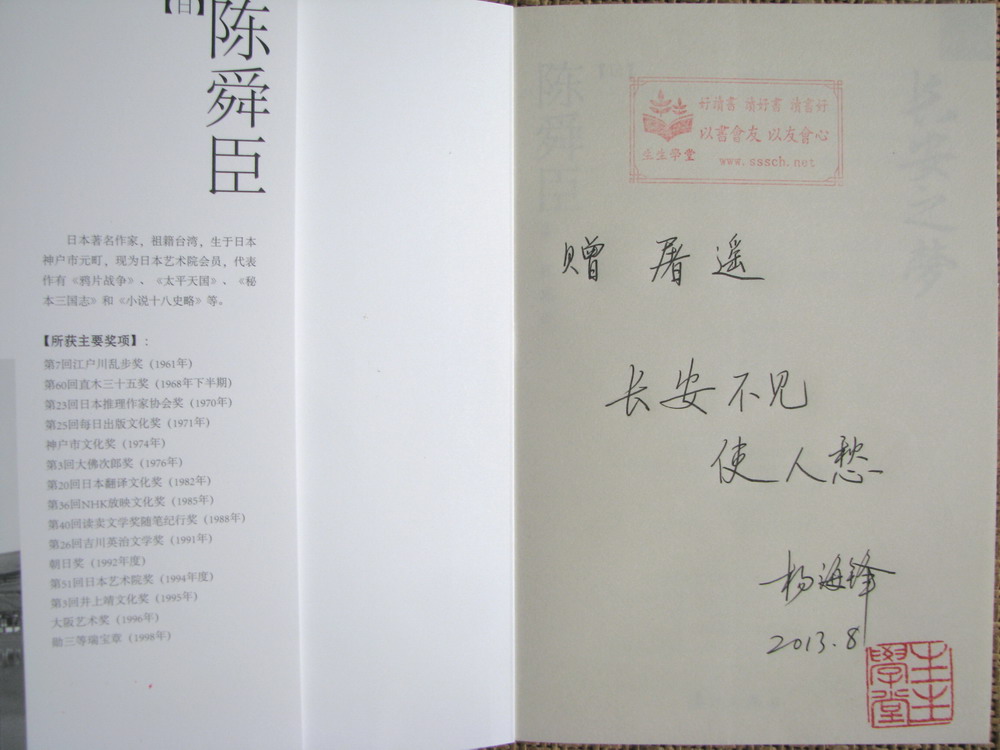 【日】
陈舜臣
日本著名作家，祖籍台湾，生于日本
神户市元町，现为日本艺术院会员，代表
作有《鸦片战争》、《太平天国》、《秘
本三国志》和《小说十八史略》等。
【所获主要奖项】：
第7回江户川乱步奖（1961年）
第60回直木三十五奖（1968年下半期）
第23回日本推理作家协会奖（1970年）
第25回每日出版文化奖（1971年）
神户市文化奖（1974年）
第3回大佛次郎奖（1976年）
第20回日本翻译文化奖（1982年）
第36回NHK放映文化奖（1985年）
第40回读卖文学奖随笔纪行奖（1988年）
第26回吉川英治文学奖（1991年）
朝日奖（1992年度）
第51回日本艺术院奖（1994年度）
第3回井上靖文化奖（1995年）
大阪艺术奖（1996年）
勋三等瑞宝章（1998年）
好讀書 讀好書 讀書好
以書會友 以友會心
生生學堂
www.sssch.net
长安之梦
赠 屠遥
长安不见
使人愁
杨海锋
2013.8
生生
學堂